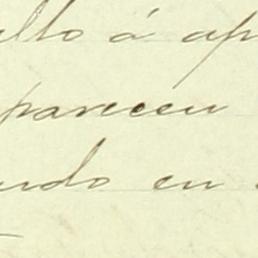 ello á ap
parecen
endo en